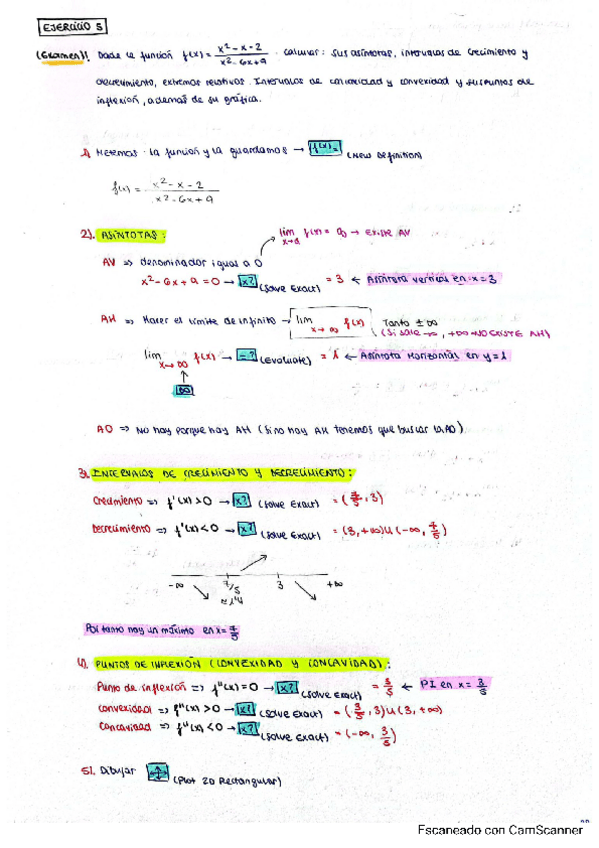 EJERCICIO 5
(Examen)! Dada la función f(x) = x²-x-2 / x²-6x+9 . calcular: sus asíntotas, intervalos de crecimiento y
decrecimiento, extremos relativos. Intervalos de concavidad y convexidad y sus puntos de
inflexión, además de su gráfica.
1) Metemos la función y la guardamos → f(x):= (New Definition)
f(x) = x²-x-2 / x²-6x+9
2). ASÍNTOTAS: lim x→a f(x) = ∞ → existe AV
AV => denominador igual a 0
x²-6x+9=0 → x? (Solve Exact) = 3 ← Asíntota vertical en x=3
AH => Hacer el límite de infinito → lim x→∞ f(x) Tanto ±∞
(Si sale -∞, +∞ NO EXISTE AH)
lim x→∞ f(x) → =? (Evaluate) = 1 ← Asíntota Horizontal en y=1
∞
AO => No hay porque hay AH (Si no hay AH tenemos que buscar la AO).
3). INTERVALOS DE CRECIMIENTO Y DECRECIMIENTO:
Crecimiento => f'(x)>0 → x? (Solve Exact) = (7/5, 3)
Decrecimiento => f'(x)<0 → x? (Solve Exact) = (3,+∞)U(-∞, 7/5)
-∞ 7/5 3 +∞
≈1'4
Por tanto hay un máximo en x=7/5
4). PUNTOS DE INFLEXIÓN (CONVEXIDAD Y CONCAVIDAD):
Punto de inflexión => f''(x)=0 → x? (Solve Exact) = 3/5 ← PI en x= 3/5
Convexidad => f''(x)>0 → x? (Solve Exact) = (3/5, 3)U(3, +∞)
Concavidad => f''(x)<0 → x? (Solve Exact) = (-∞, 3/5)
5). Dibujar (Plot 2D Rectangular)
Escaneado con CamScanner